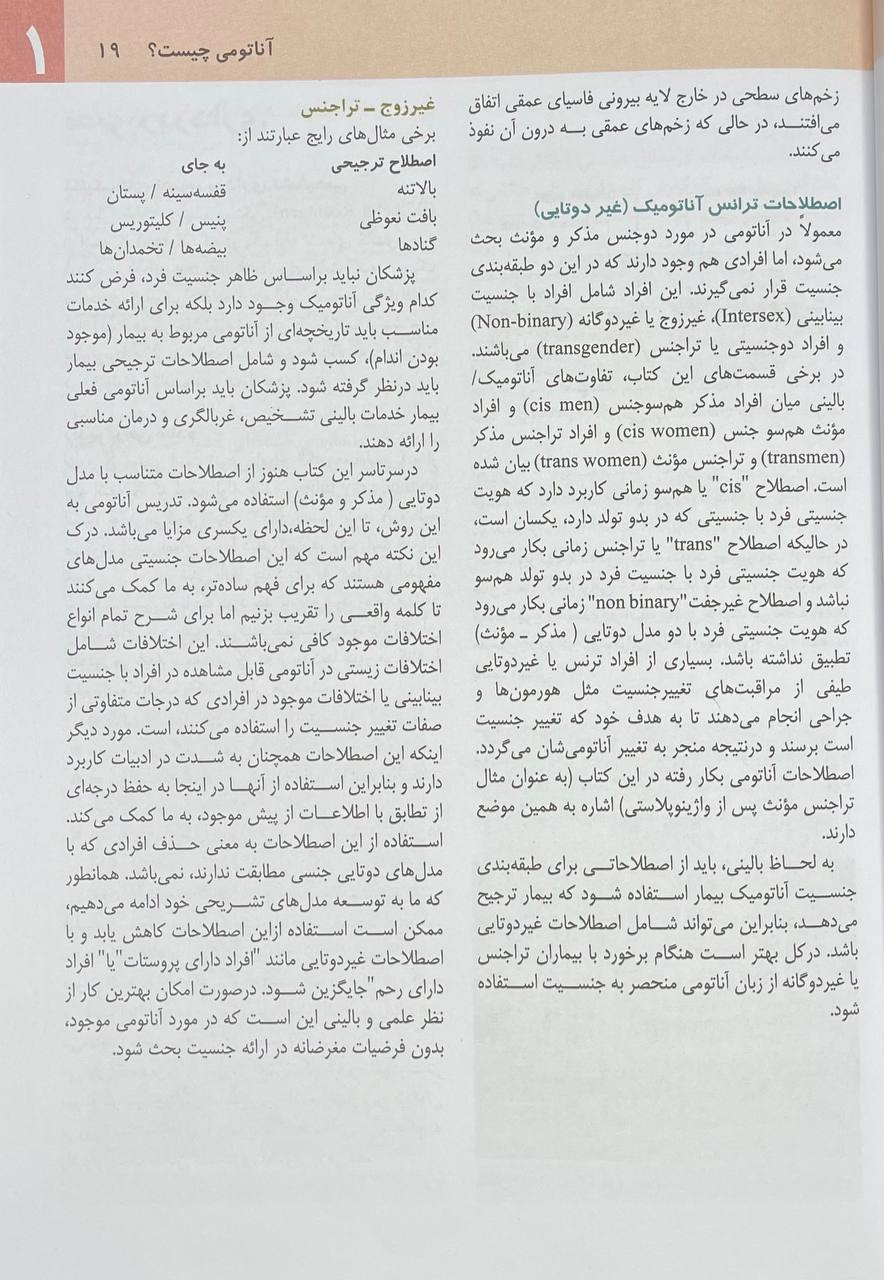 ۱
آناتومی چیست؟ ۱۹
زخم‌های سطحی در خارج لایه بیرونی فاسیای عمقی اتفاق
می‌افتنـد، در حالی که زخم‌های عمقی بـه درون آن نفوذ
می‌کنند.
اصطلاحات ترانس آناتومیک (غیر دوتایی)
معمولاً در آناتومی در مورد دوجنس مذکر و مؤنث بحث
می‌شود، اما افرادی هم وجود دارند که در این دو طبقه‌بندی
جنسیت قرار نمی‌گیرند. این افراد شامل افراد با جنسیت
بینابینی (Intersex)، غیرزوج یا غیردوگانه (Non-binary)
و افراد دوجنسیتی یا تراجنس (transgender) می‌باشند.
در برخی قسمت‌های این کتاب، تفاوت‌های آناتومیک/
بالینی میان افراد مذکر هم‌سوجنس (cis men) و افراد
مؤنث هم‌سو جنس (cis women) و افراد تراجنس مذکر
(transmen) و تراجنس مؤنث (trans women) بیان شده
است. اصطلاح "cis" یا هم‌سو زمانی کاربرد دارد که هویت
جنسیتی فرد با جنسیتی که در بدو تولد دارد، یکسان است،
در حالیکه اصطلاح "trans" یا تراجنس زمانی بکار می‌رود
که هویت جنسیتی فرد با جنسیت فرد در بدو تولد هم‌سو
نباشد و اصطلاح غیرجفت"non binary" زمانی بکار می‌رود
که هویت جنسیتی فرد با دو مدل دوتایی ( مذکر ـ مؤنث)
تطبیق نداشته باشد. بسیاری از افراد ترنس یا غیردوتایی
طیفی از مراقبت‌های تغییرجنسیت مثل هورمون‌ها و
جراحی انجام می‌دهند تا به هدف خود که تغییر جنسیت
است برسند و درنتیجه منجر به تغییر آناتومی‌شان می‌گردد.
اصطلاحات آناتومی بکار رفته در این کتاب (به عنوان مثال
تراجنس مؤنث پس از واژینوپلاستی) اشاره به همین موضع
دارند.
به لحـاظ بالینی، باید از اصطلاحاتـی برای طبقه‌بندی
جنسـیت آناتومیک بیمار اسـتفاده شـود که بیمار ترجیح
می‌دهـد، بنابراین می‌تواند شـامل اصطلاحات غیردوتایی
باشد. درکل بهتر اسـت هنگام برخورد با بیماران تراجنس
یا غیردوگانه از زبان آناتومی منحصر به جنسـیت اسـتفاده
شود.
غیرزوج ـ تراجنس
برخی مثال‌های رایج عبارتند از:
اصطلاح ترجیحی به جای
بالاتنه قفسه‌سینه / پستان
بافت نعوظی پنیس / کلیتوریس
گنادها بیضه‌ها / تخمدان‌ها
پزشکان نباید براسـاس ظاهر جنسیت فرد، فرض کنند
کدام ویژگی آناتومیک وجـود دارد بلکه برای ارائه خدمات
مناسـب باید تاریخچه‌ای از آناتومی مربوط به بیمار (موجود
بودن اندام)، کسب شود و شامل اصطلاحات ترجیحی بیمار
باید درنظر گرفته شود. پزشکان باید براساس آناتومی فعلی
بیمار خدمات بالینی تشـخیص، غربالگری و درمان مناسبی
را ارائه دهند.
درسرتاسر این کتاب هنوز از اصطلاحات متناسب با مدل
دوتایی ( مذکر و مؤنث) استفاده می‌شود. تدریس آناتومی به
این روش، تا این لحظه،دارای یکسری مزایا می‌باشد. درک
این نکته مهم است که این اصطلاحات جنسیتی مدل‌های
مفهومی هستند که برای فهم ساده‌تر، به ما کمک می‌کنند
تا کلمه واقعـی را تقریب بزنیم اما برای شـرح تمام انواع
اختلافات موجود کافی نمی‌باشـند. این اختلافات شـامل
اختلافات زیستی در آناتومی قابل مشاهده در افراد با جنسیت
بینابینی یا اختلافات موجود در افرادی که درجات متفاوتی از
صفات تغییر جنسـیت را استفاده می‌کنند، است. مورد دیگر
اینکه این اصطلاحات همچنان به شـدت در ادبیات کاربرد
دارند و بنابراین اسـتفاده از آنهـا در اینجا به حفظ درجه‌ای
از تطابق با اطلاعـات از پیش موجود، به ما کمک می‌کند.
اسـتفاده از این اصطلاحات به معنی حـذف افرادی که با
مدل‌های دوتایی جنسی مطابقت ندارند، نمی‌باشد. همانطور
که ما به توسـعه مدل‌های تشـریحی خود ادامه می‌دهیم،
ممکن اسـت اسـتفاده ازاین اصطلاحات کاهش یابد و با
اصطلاحات غیردوتایی مانند "افراد دارای پروستات"یا" افراد
دارای رحم"جایگزین شـود. درصورت امکان بهترین کار از
نظر علمی و بالینی این اسـت که در مورد آناتومی موجود،
بدون فرضیات مغرضانه در ارائه جنسیت بحث شود.